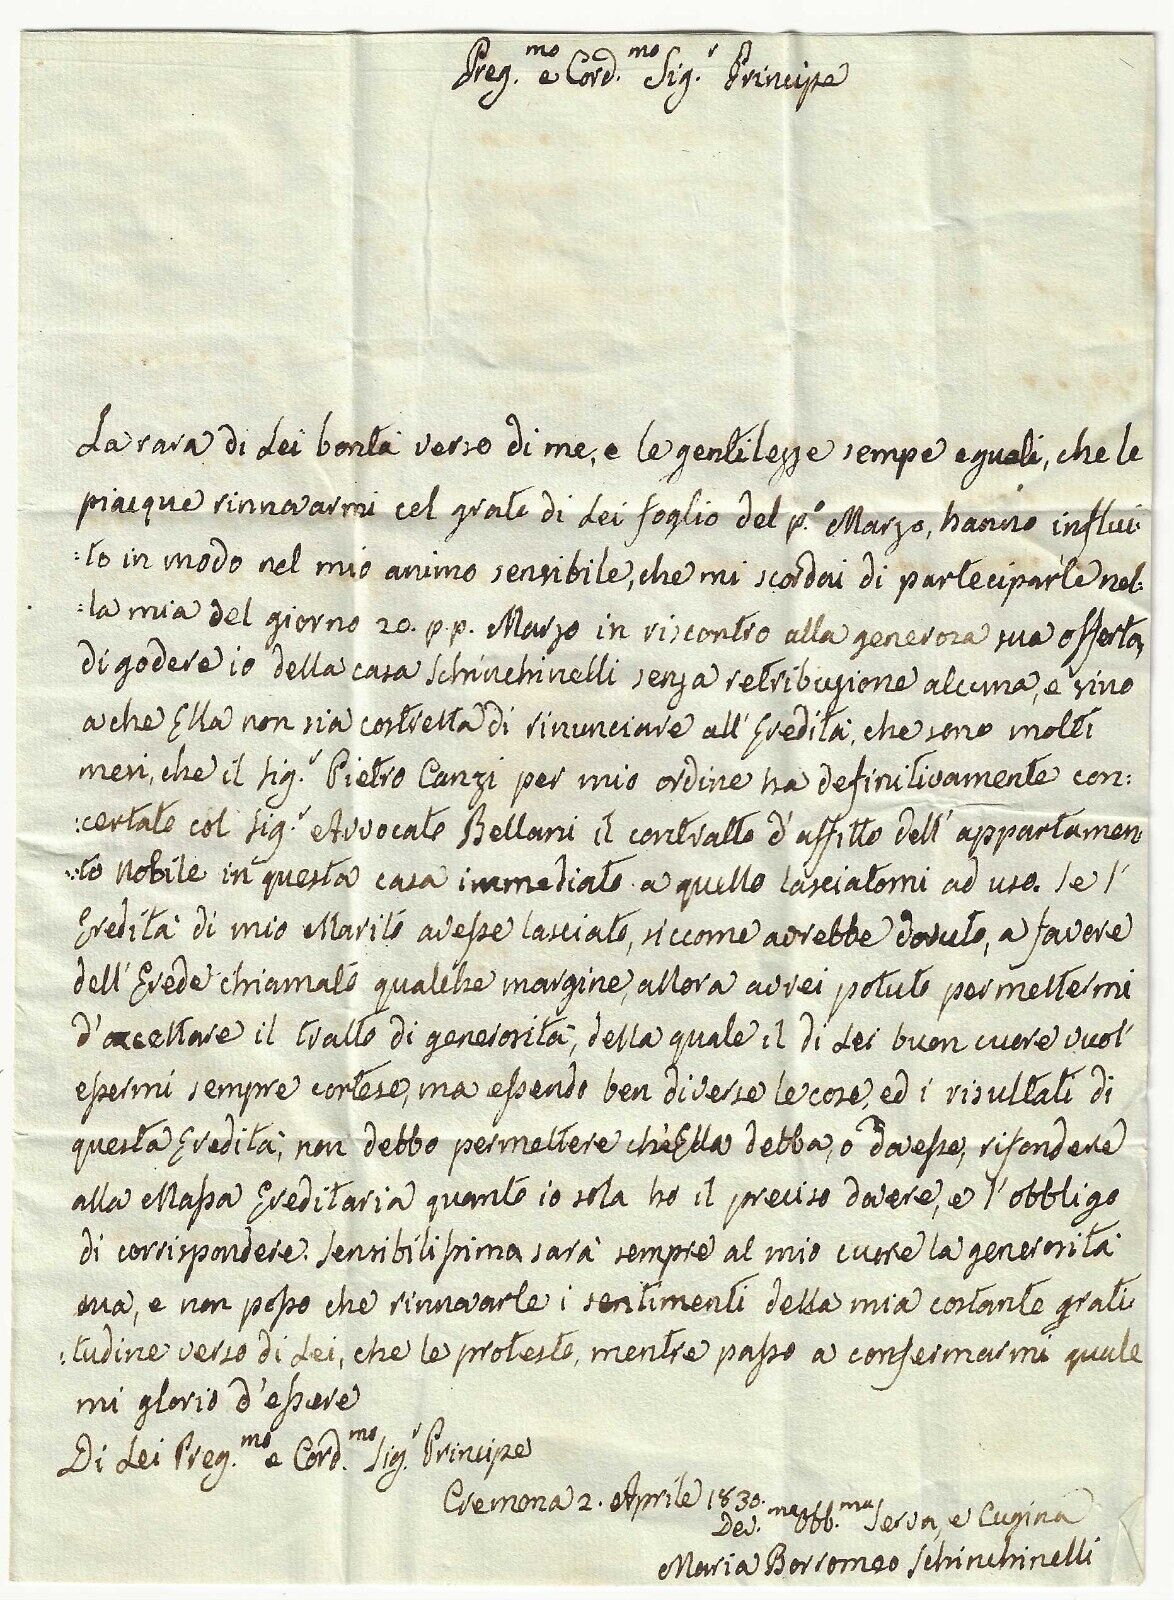 Preg.mo e Cord.mo Sig.r Principe
La rara di Lei bontà verso di me, e le gentilezze sempre eguali, che le
piacque rinnovarmi col grato di Lei foglio del p.o Marzo, hanno influi-
:to in modo nel mio animo sensibile, che mi scordai di parteciparle nel-
:la mia del giorno 20. p.p. Marzo in riscontro alla generosa sua offerta,
di godere io della casa Schinchinelli senza retribuzione alcuna, e sino
a che Ella non sia costretta di rinunciare all' Eredità, che sono molti
mesi, che il Sig.r Pietro Canzi per mio ordine ha definitivamente con:
:certato col Sig.r Avvocato Bellani il contratto d' affitto dell' appartamen
:to Nobile in questa casa immediato a quello lasciatomi ad uso. Se l'
Eredità di mio Marito avesse lasciato, siccome avrebbe dovuto, a favore
dell' Erede chiamato qualche margine, allora avrei potuto permettermi
d' accettare il tratto di generosità, della quale il di Lei buon cuore vuol'
essermi sempre cortese, ma essendo ben diverse le cose, ed i risultati di
questa Eredità, non debbo permettere ch'Ella debba, o dovesse, rifondere
alla Massa Ereditaria quanto io sola ho il preciso dovere, e l' obbligo
di corrispondere. Sensibilissima sarà sempre al mio cuore la generosità
sua, e non posso che rinnovarle i sentimenti della mia costante grati
:tudine verso di Lei, che le protesto, mentre passo a confermarmi quale
mi glorio d' essere
Di Lei Preg.mo e Cord.mo Sig.r Principe
Cremona 2. Aprile 1830.
Dev.ma Obb.ma Serva, e Cugina
Maria Borromeo Schinchinelli